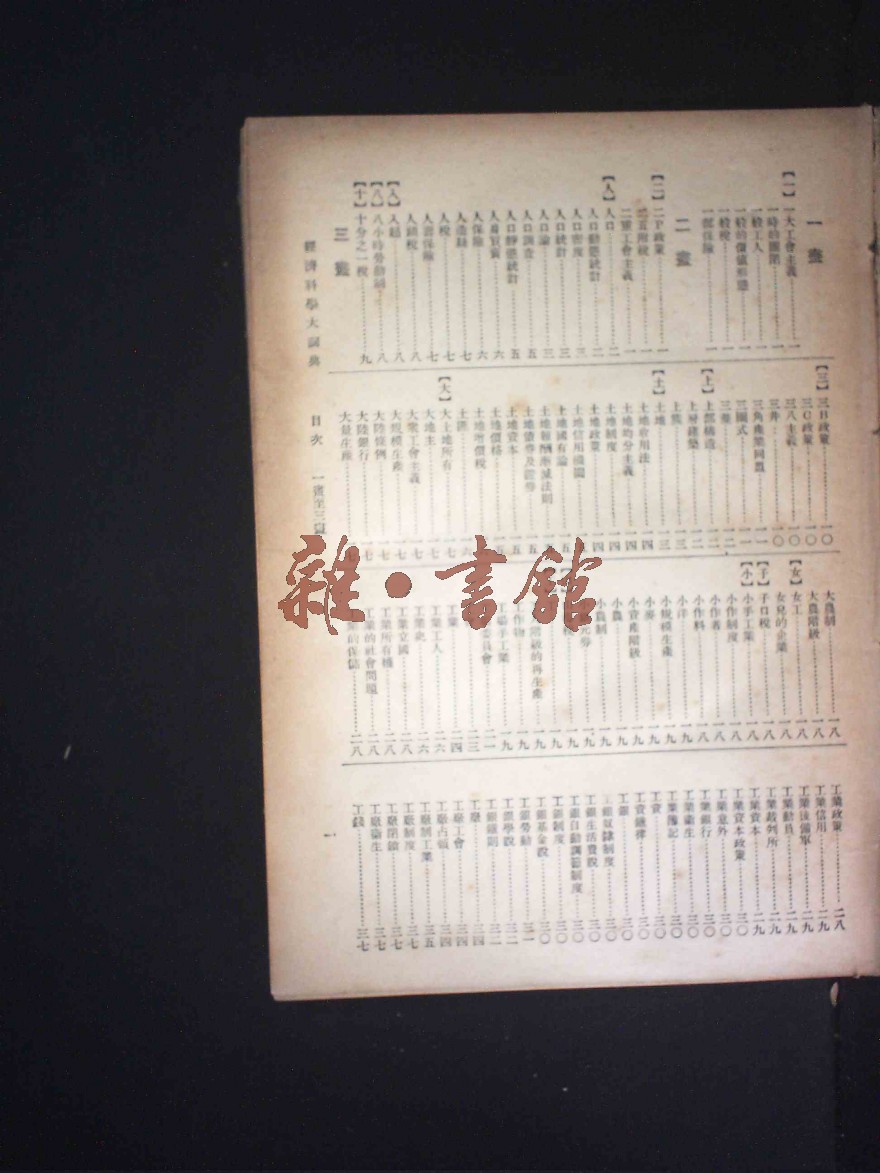 一畫
【一】
一大工會主義……一
一時的團閉……一
一般工人……一
一般的價值形態……一
一般稅……一
一部保險……一
二畫
【二】
二P政策……一
二五附稅……一
二重工會主義……一
【人】
人口……二
人口動態統計……二
人口密度……三
人口統計……三
人口論……三
人口調查……五
人口靜態統計……五
人身買賣……六
人保險……六
人造絲……七
人稅……七
人壽保險……七
人頭稅……八
【入】
入超……八
【八】
八小時勞動制……八
【十】
十分之一稅……九
三畫
【三】
三B政策……一〇
三C政策……一〇
三八主義……一〇
三井……一〇
三角產業同盟……一一
三圃式……一一
三菱……一二
【上】
上部構造……一二
上層建築……一三
上簇……一三
【土】
土地……一三
土地收用法……一四
土地均分主義……一四
土地制度……一四
土地政策……一四
土地信用機關
土地國有論
土地報酬漸減法則
土地債券及證券
土地資本……一五
土地價格
土地增價稅
土匯
【大】
大土地所有……一七
大地主……一七
大眾工會主義……一七
大規模生產……一七
大陸條例……一七
大陸銀行……一七
大量生產
大農制……一八
大農階級……一八
【女】
女工……一八
女兒的企業……一八
【子】
子口稅……一八
【小】
小手工業……一八
小作制度……一八
小作者……一八
小作料……一八
小洋……一九
小規模生產……一九
小麥……一九
小資產階級……一九
小農……一九
小農制……一九
階級的再生產……一九
作物……一九
場手工業……一九
委員會……二一
工業……二四
工業人……二六
工業化……二六
工業立國……二八
工業所有權……二八
工業的社會問題……二八
業的保護……二八
工業政策……二八
工業信用……二九
工業後備軍……二九
工業動員……二九
工業裁判所……二九
工業資本……二九
工業資本政策……三〇
工業意外……三〇
工業銀行……三〇
工業衛生……三〇
工業簿記……三〇
工資……三〇
工資鐵律……三〇
工銀……三〇
工銀奴隸制度……三〇
工銀生活費說……三〇
工銀自動調節制度……三〇
工銀制度……三〇
工銀基金說……三〇
工銀勞動……三一
工銀學說……三二
工銀鐵則……三二
工廠……三四
工廠工會……三四
工廠占領……三四
工廠制工業……三五
工廠制度……三七
工廠閉鎖……三七
工廠衛生……三七
工錢……三七
經濟科學大詞典
目次
一畫至三畫
一
雜·書館